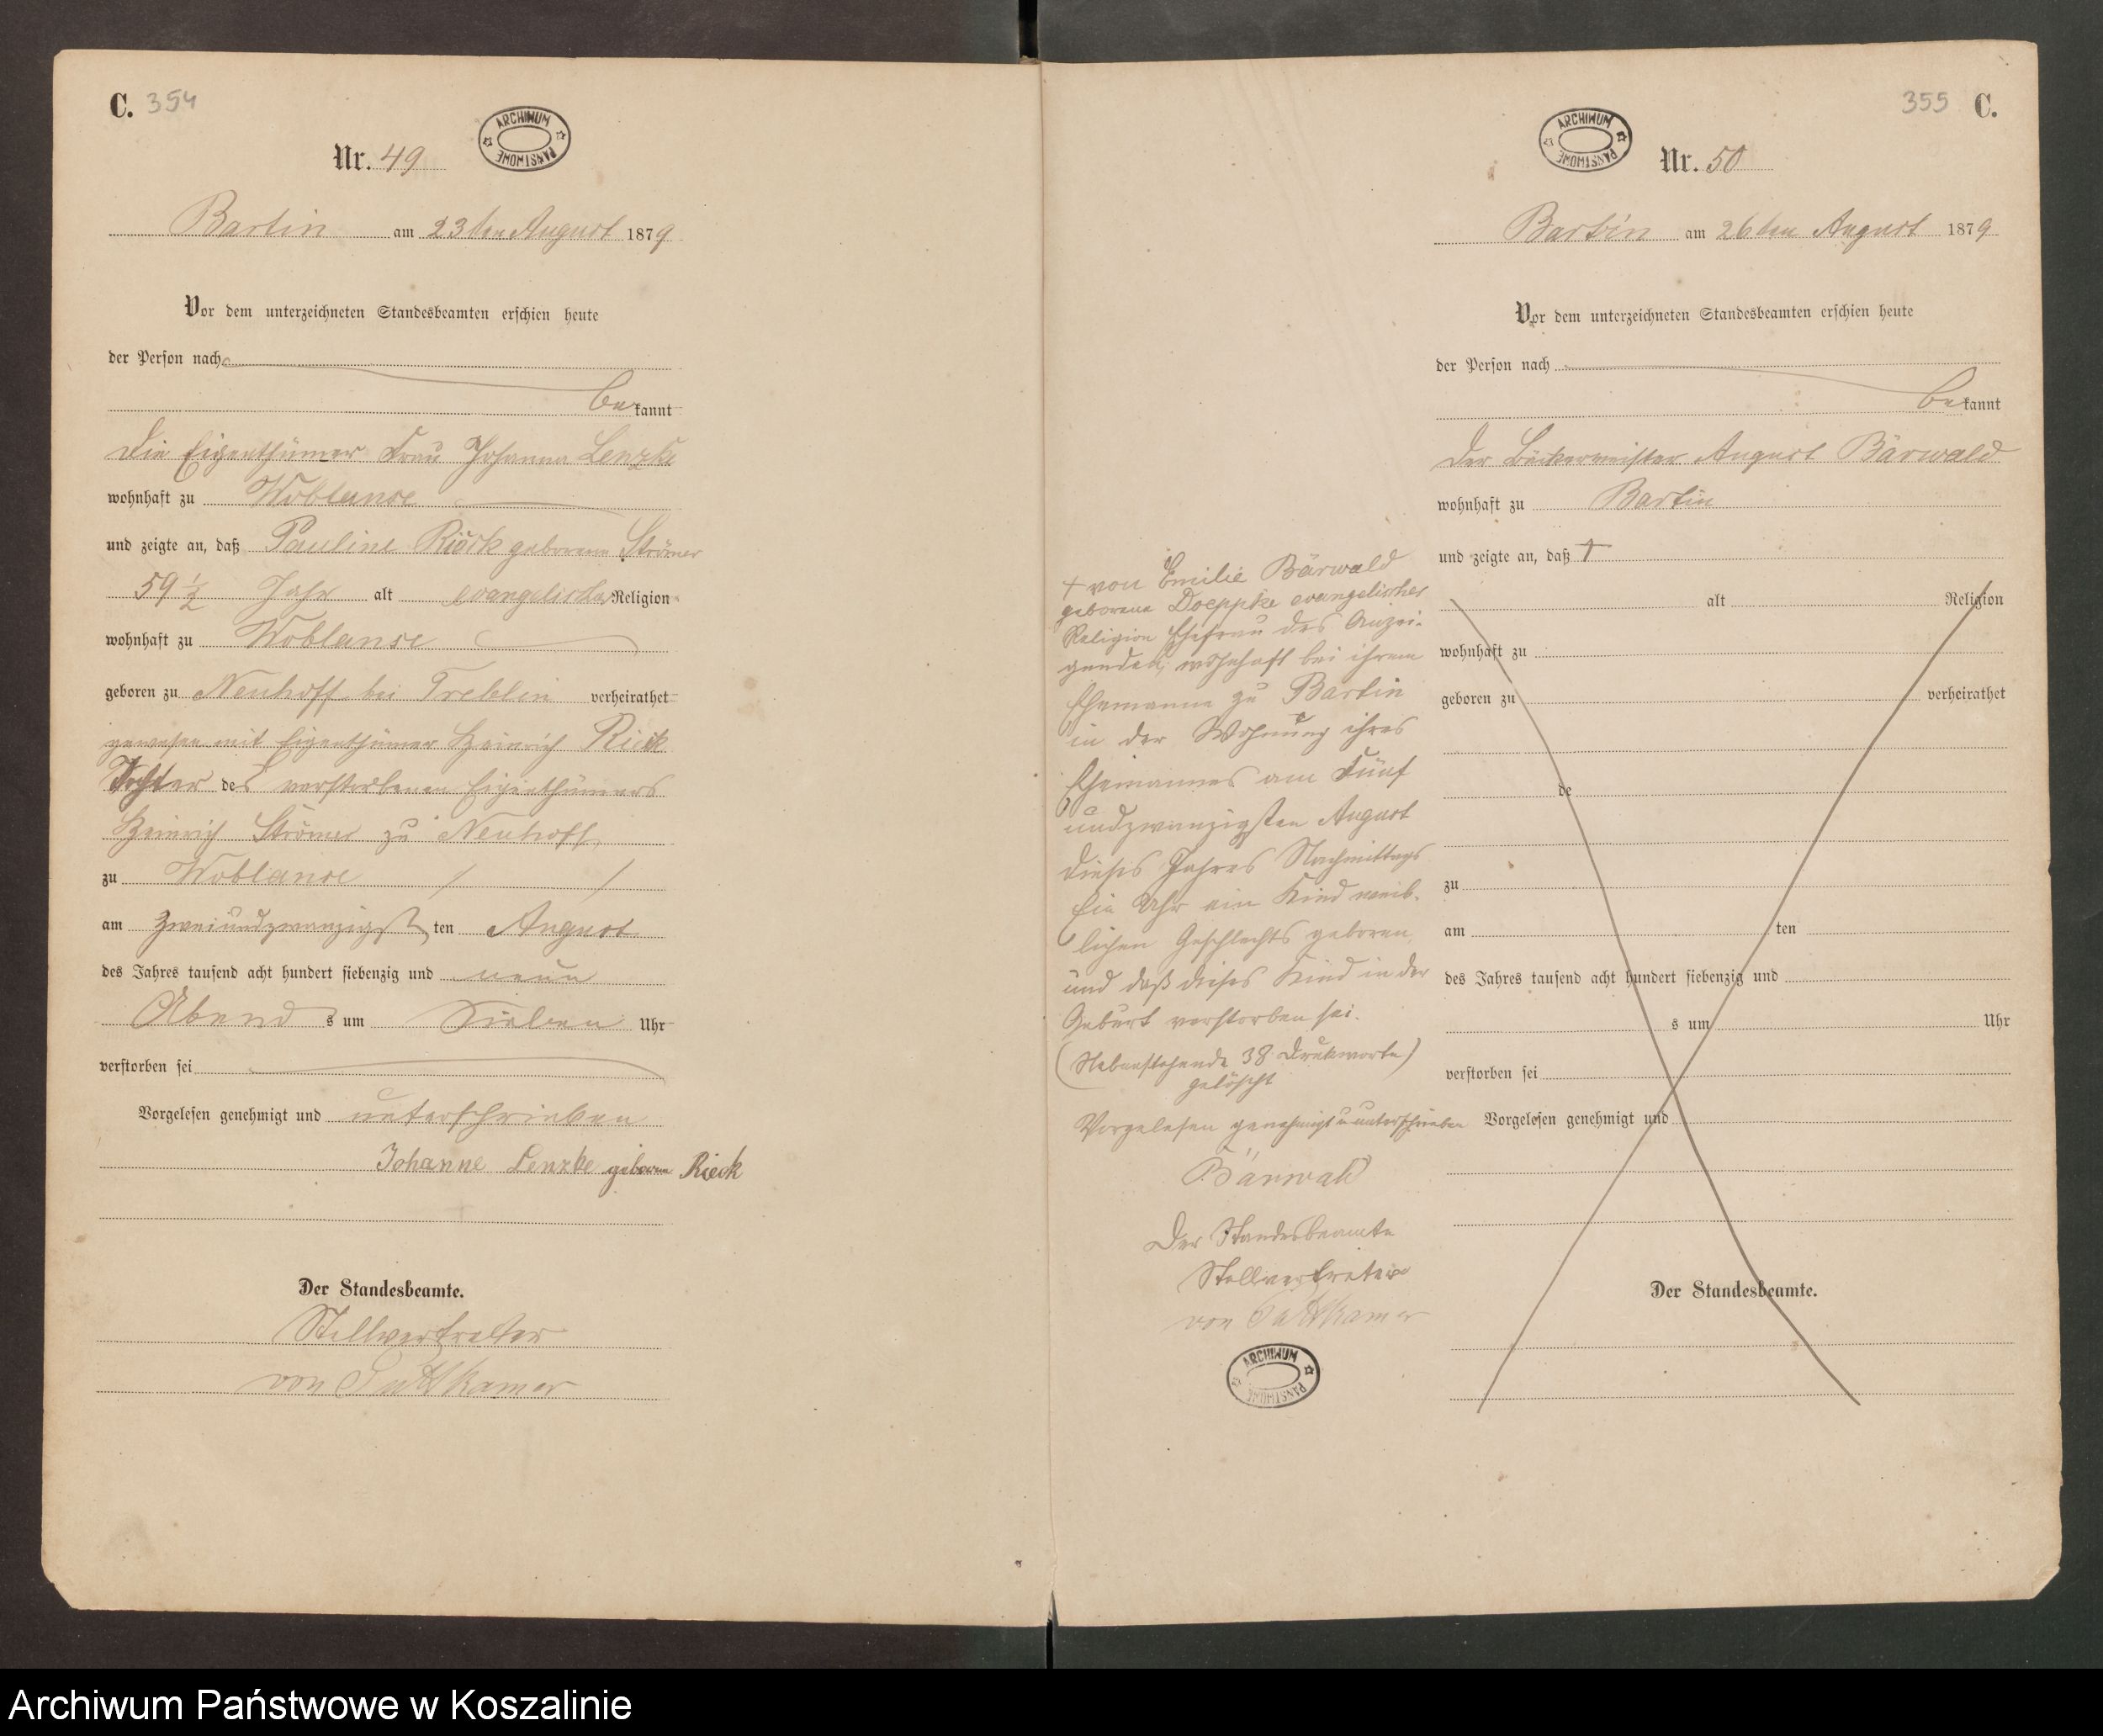 C. 354
ARCHIWUM PAŃSTWOWE
Nr. 49
Bartin am 23ten August 1879
Vor dem unterzeichneten Standesbeamten erschien heute
der Person nach
bekannt
Die Eigenthümer Frau Johanna Lenzke
wohnhaft zu Woblanse
und zeigte an, daß Pauline Rieck geborene Strömer
59 1/2 Jahr alt evangelischer Religion
wohnhaft zu Woblanse
geboren zu Neuhoff bei Treblin verheirathet
gewesen mit Eigenthümer Heinrich Rieck
Tochter des verstorbenen Eigenthümers
Heinrich Strömer zu Neuhoff,
zu Woblanse
am zweiundzwanzigsten August
des Jahres tausend acht hundert siebenzig und neun
Abends um Sieben Uhr
verstorben sei
Vorgelesen genehmigt und unterschrieben
Johanne Lenzke geborene Rieck
Der Standesbeamte.
Stellvertreter
von Puttkamer
355 C.
ARCHIWUM PAŃSTWOWE
Nr. 50
Bartin am 26ten August 1879
Vor dem unterzeichneten Standesbeamten erschien heute
der Person nach
bekannt
Der Bäckermeister August Bärwald
wohnhaft zu Bartin
und zeigte an, daß +
alt Religion
wohnhaft zu
geboren zu verheirathet
de
zu
am ten
des Jahres tausend acht hundert siebenzig und
s um Uhr
verstorben sei
Vorgelesen genehmigt und
Der Standesbeamte.
+ von Emilie Bärwald
geborene Doeppke evangelischer
Religion Ehefrau des Anzei-
genden, wohnhaft bei ihrem
Ehemanne zu Bartin
in der Wohnung ihres
Ehemannes am Fünf
undzwanzigsten August
dieses Jahres Nachmittags
Ein Uhr ein Kind weib-
lichen Geschlechts geboren
und daß dieses Kind in der
Geburt verstorben sei.
(Nebenstehende 38 Druckworte)
gelöscht
Vorgelesen genehmigt u unterschrieben
Bärwald
Der Standesbeamte
Stellvertreter
von Puttkamer
ARCHIWUM PAŃSTWOWE
Archiwum Państwowe w Koszalinie